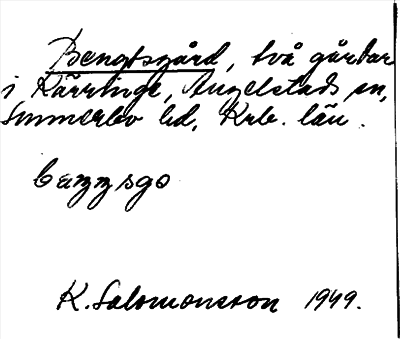 Bengtsgård, två gårdar
i Kärringe, Angelstads sn,
Sunnerbo hd, Krb. län.
K. Salomonsson 1949.